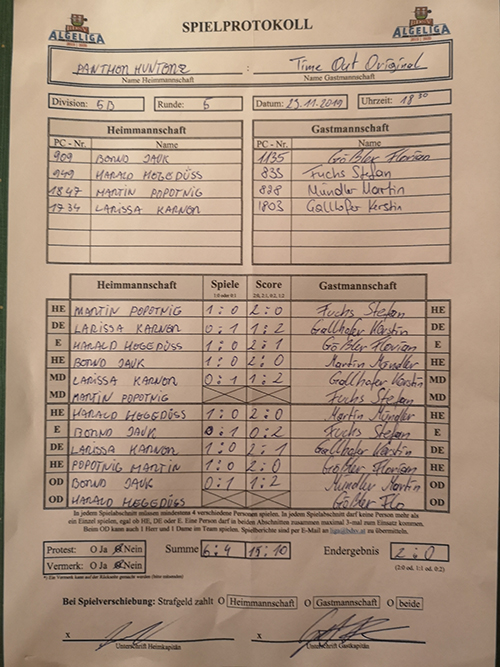 ALGELIGA SPIELPROTOKOLL ALGELIGA
PANTHOR HUNTORZ : Time Out Original
Name Heimmannschaft Name Gastmannschaft
Division: 5D Runde: 5 Datum: 29.11.2019 Uhrzeit: 18 30
Heimmannschaft Gastmannschaft
PC - Nr. Name PC - Nr. Name
909 BORND JAUK 1135 Gößler Florian
949 HARALD HEGEDÜSS 835 Fuchs Stefan
1847 MARTIN POPOTNIG 828 Mündler Martin
1734 LARISSA KARNOR 1803 Gallhofer Kerstin
Heimmannschaft Spiele Score Gastmannschaft
1:0 oder 0:1 2:0, 2:1, 0:2, 1:2
HE MARTIN POPOTNIG 1:0 2:0 Fuchs Stefan HE
DE LARISSA KARNOR 0:1 1:2 Gallhofer Kerstin DE
E HARALD HEGEDÜSS 1:0 2:1 Gößler Florian E
HE BORND JAUK 1:0 2:0 Martin Mündler HE
MD LARISSA KARNOR 0:1 1:2 Gallhofer Kerstin MD
MD MARTIN POPOTNIG Fuchs Stefan MD
HE HARALD HEGGEDÜSS 1:0 2:0 Martin Mündler HE
E BORND JAUK 0:1 0:2 Fuchs Stefan E
DE LARISSA KARNOR 1:0 2:1 Gallhofer Kerstin DE
HE POPOTNIG MARTIN 1:0 2:0 Gößler Florian HE
OD BORND JAUK 0:1 1:2 Mündler Martin OD
OD HARALD HEGEDÜSS Gößler Flo OD
In jedem Spielabschnitt müssen mindestens 4 verschiedene Personen spielen. In jedem Spielabschnitt darf keine Person mehr als
ein Einzel spielen, egal ob HE, DE oder E. Eine Person darf in beiden Abschnitten zusammen maximal 3-mal zum Einsatz kommen.
Beim OD kann auch 1 Herr und 1 Dame im Team spielen. Spielberichte sind per E-Mail an zu übermitteln.
Protest: O Ja O Nein Summe 6:4 15:10 Endergebnis 2:0
Vermerk: O Ja O Nein (2:0 od. 1:1 od. 0:2)
*) Ein Vermerk kann auf der Rückseite gemacht werden (bitte mitsenden)
Bei Spielverschiebung: Strafgeld zahlt O Heimmannschaft O Gastmannschaft O beide
x x
Unterschrift Heimkapitän Unterschrift Gastkapitän